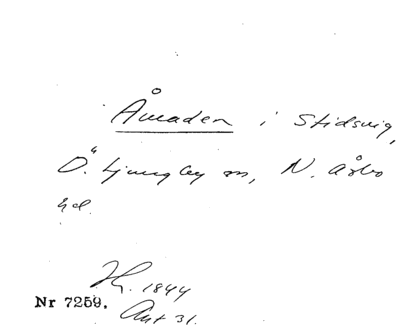 Åmaden i Stidsvig,
Ö. Ljungby sn, N. Åsbo
hd.
1844
Nr 7259. Ant 31.